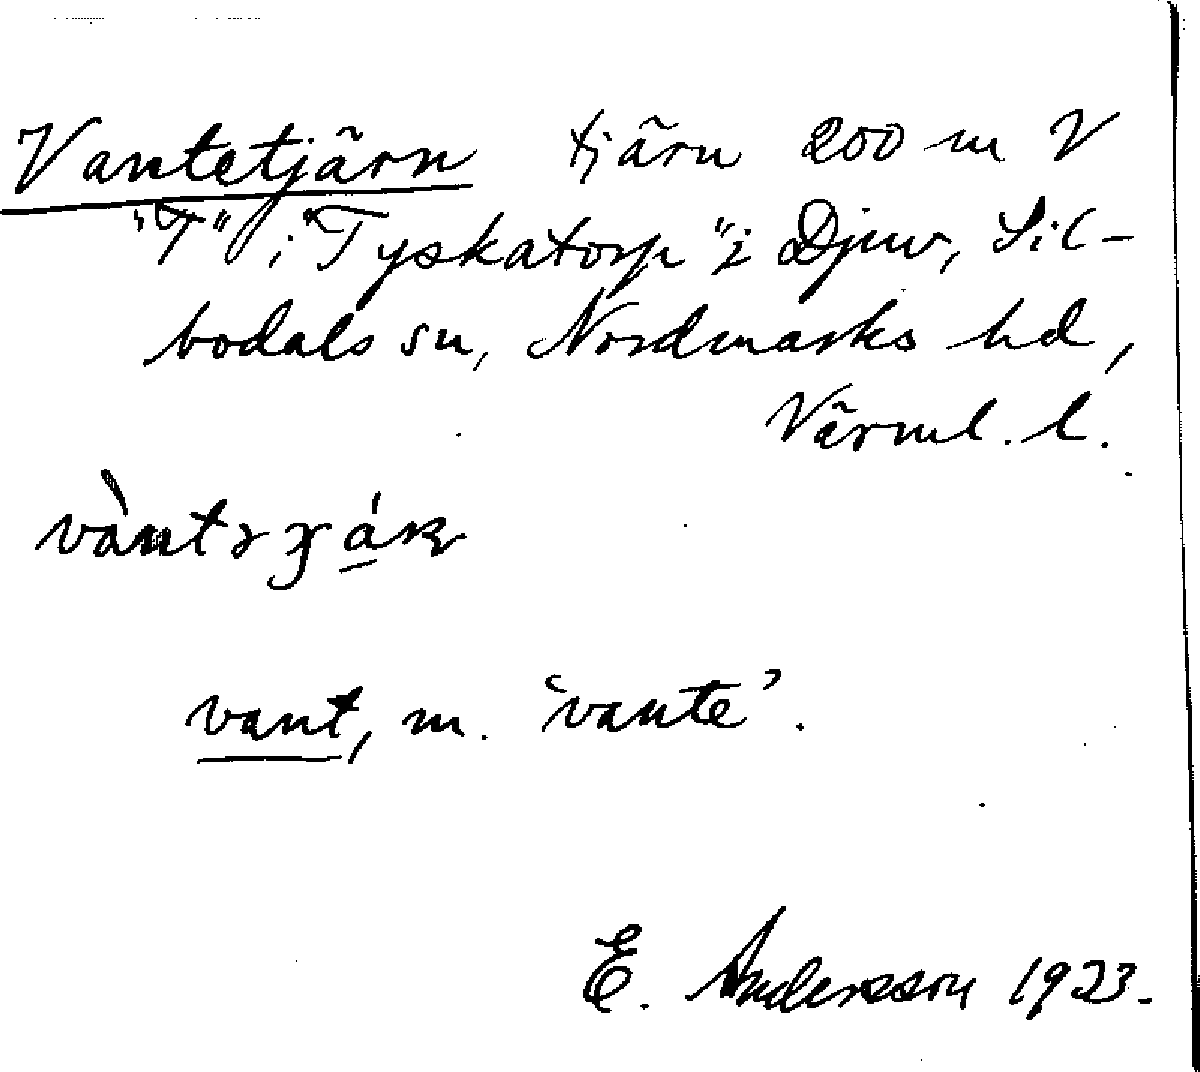 Vantetjärn tjärn 200 m V
"T" i "Tyskatorp" i Djuv, Sil-
bodals sn, Nordmarks hd,
Värml. l.
vant, m. 'vante'.
E. Andersson 1923.